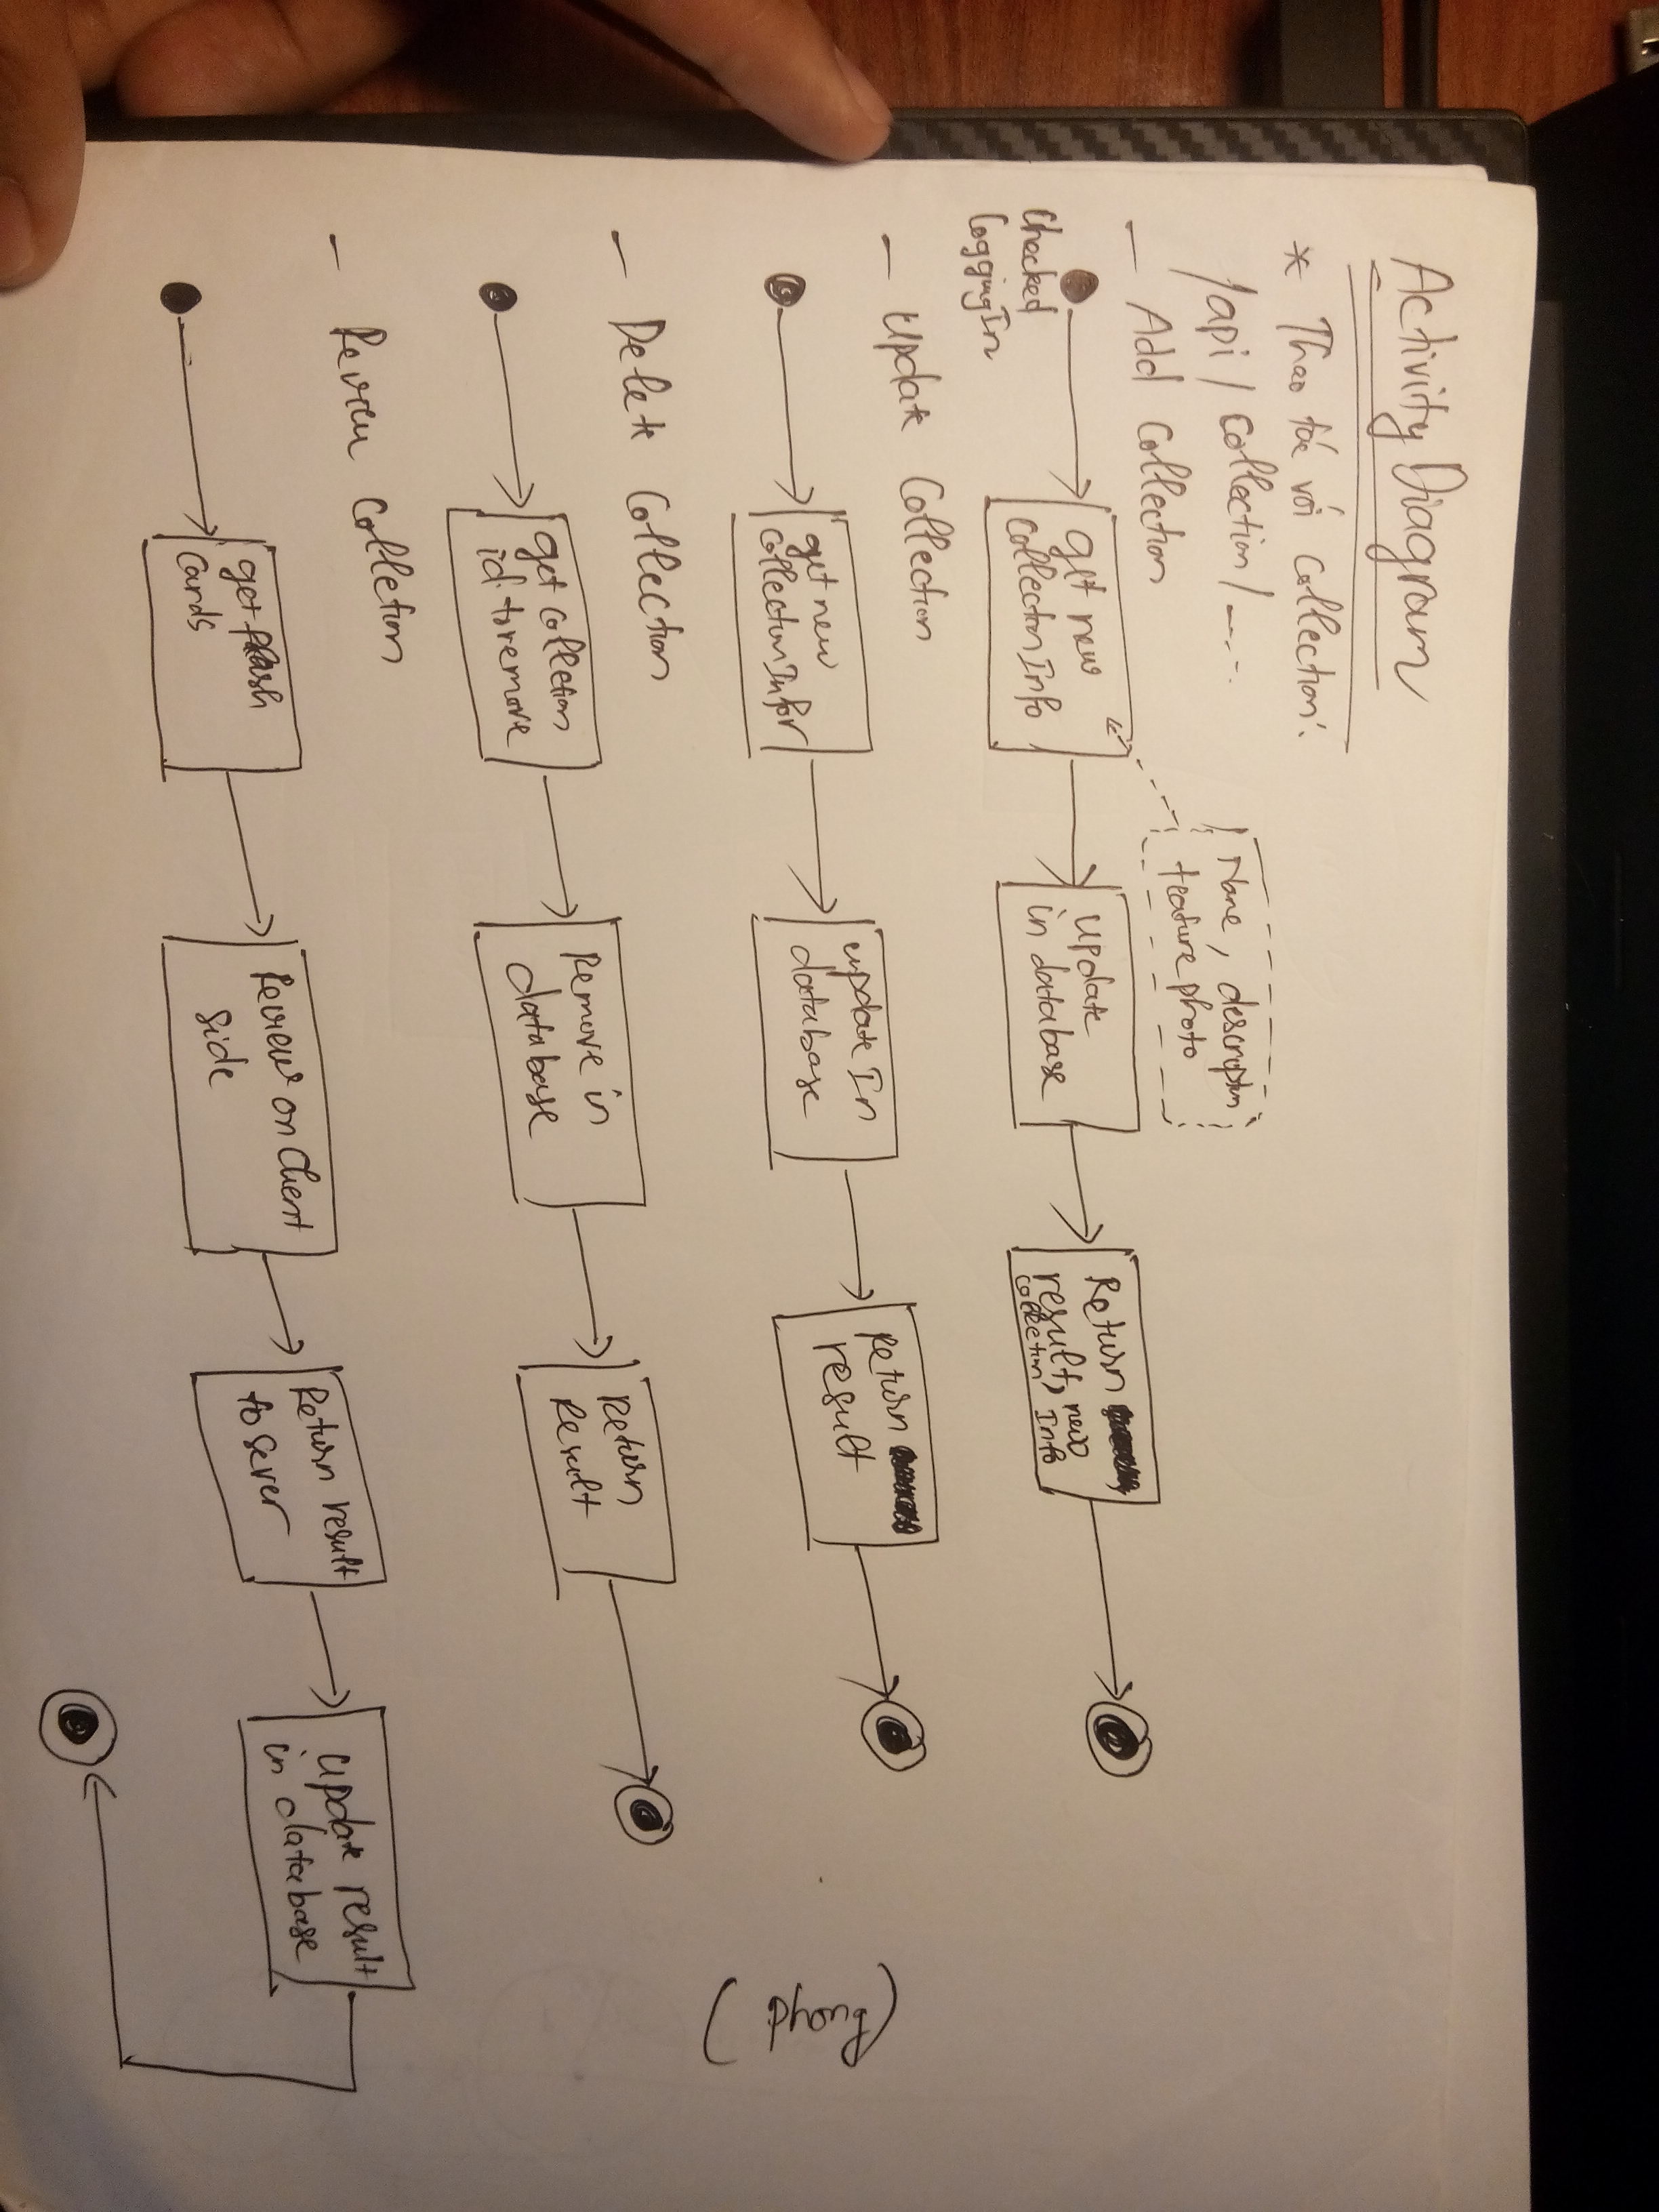 Activity Diagram
* Thao tác với Collection:
/api/collection/---.
- Add Collection
Name, description
feature photo
Checked
loggingIn
get new
collectionInfo
update
in database
Return
result, new
collection Info
- Update Collection
get new
collectionInfor
update In
database
Return
result
- Delete Collection
get colletion
id to remove
Remove in
database
Return
Result
(Phong)
- Review Colletion
get flash
cards
Review on client
side
Return result
to server
update result
in database